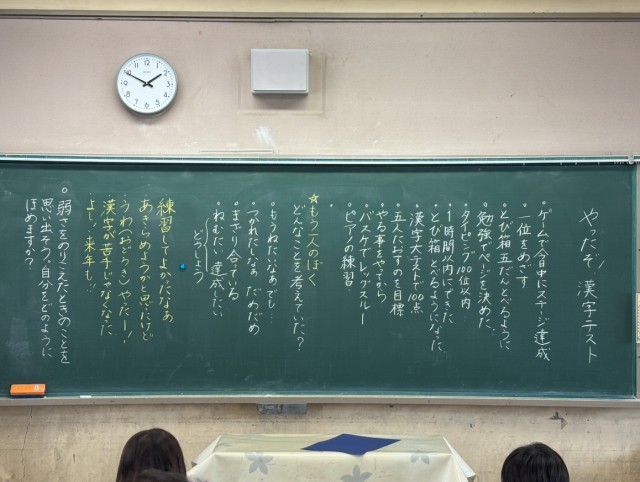 やったぞ！漢字テスト
・ゲームで今日中にステージ達成
一位をめざす
・とび箱五だんとべるように
・勉強でページを決めた。
・タイピング100位以内…
・1時間以内にできた
・とび箱とべるようになった
・漢字大テストで100点
・五人たおすのを目標
・やる事をやってから
・バスケでレッグスルー
・ピアノの練習
☆もう一人のぼく
どんなことを考えていた？
・もうねたいなぁでも…
・つかれたしなぁ だめだめ
・まざり合っている
・ねむたい 達成したい
どうしよう
練習してよかったなぁ
あきらめようかと思ったけど
・うわ(おどろき)やたー！！
・漢字が苦手じゃなくなった
・よし！来年も！！
○弱さをのりこえたときのことを
思い出そう。自分をどのように
ほめますか？
12
1
2
3
4
5
6
7
8
9
10
11